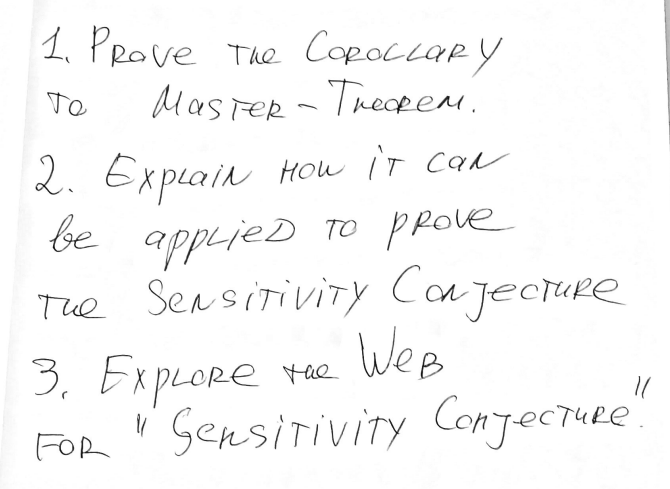 1. Prove the Corollary
to Master-Theorem.
2. Explain how it can
be applied to prove
the Sensitivity Conjecture
3. Explore the Web
for "Sensitivity Conjecture".